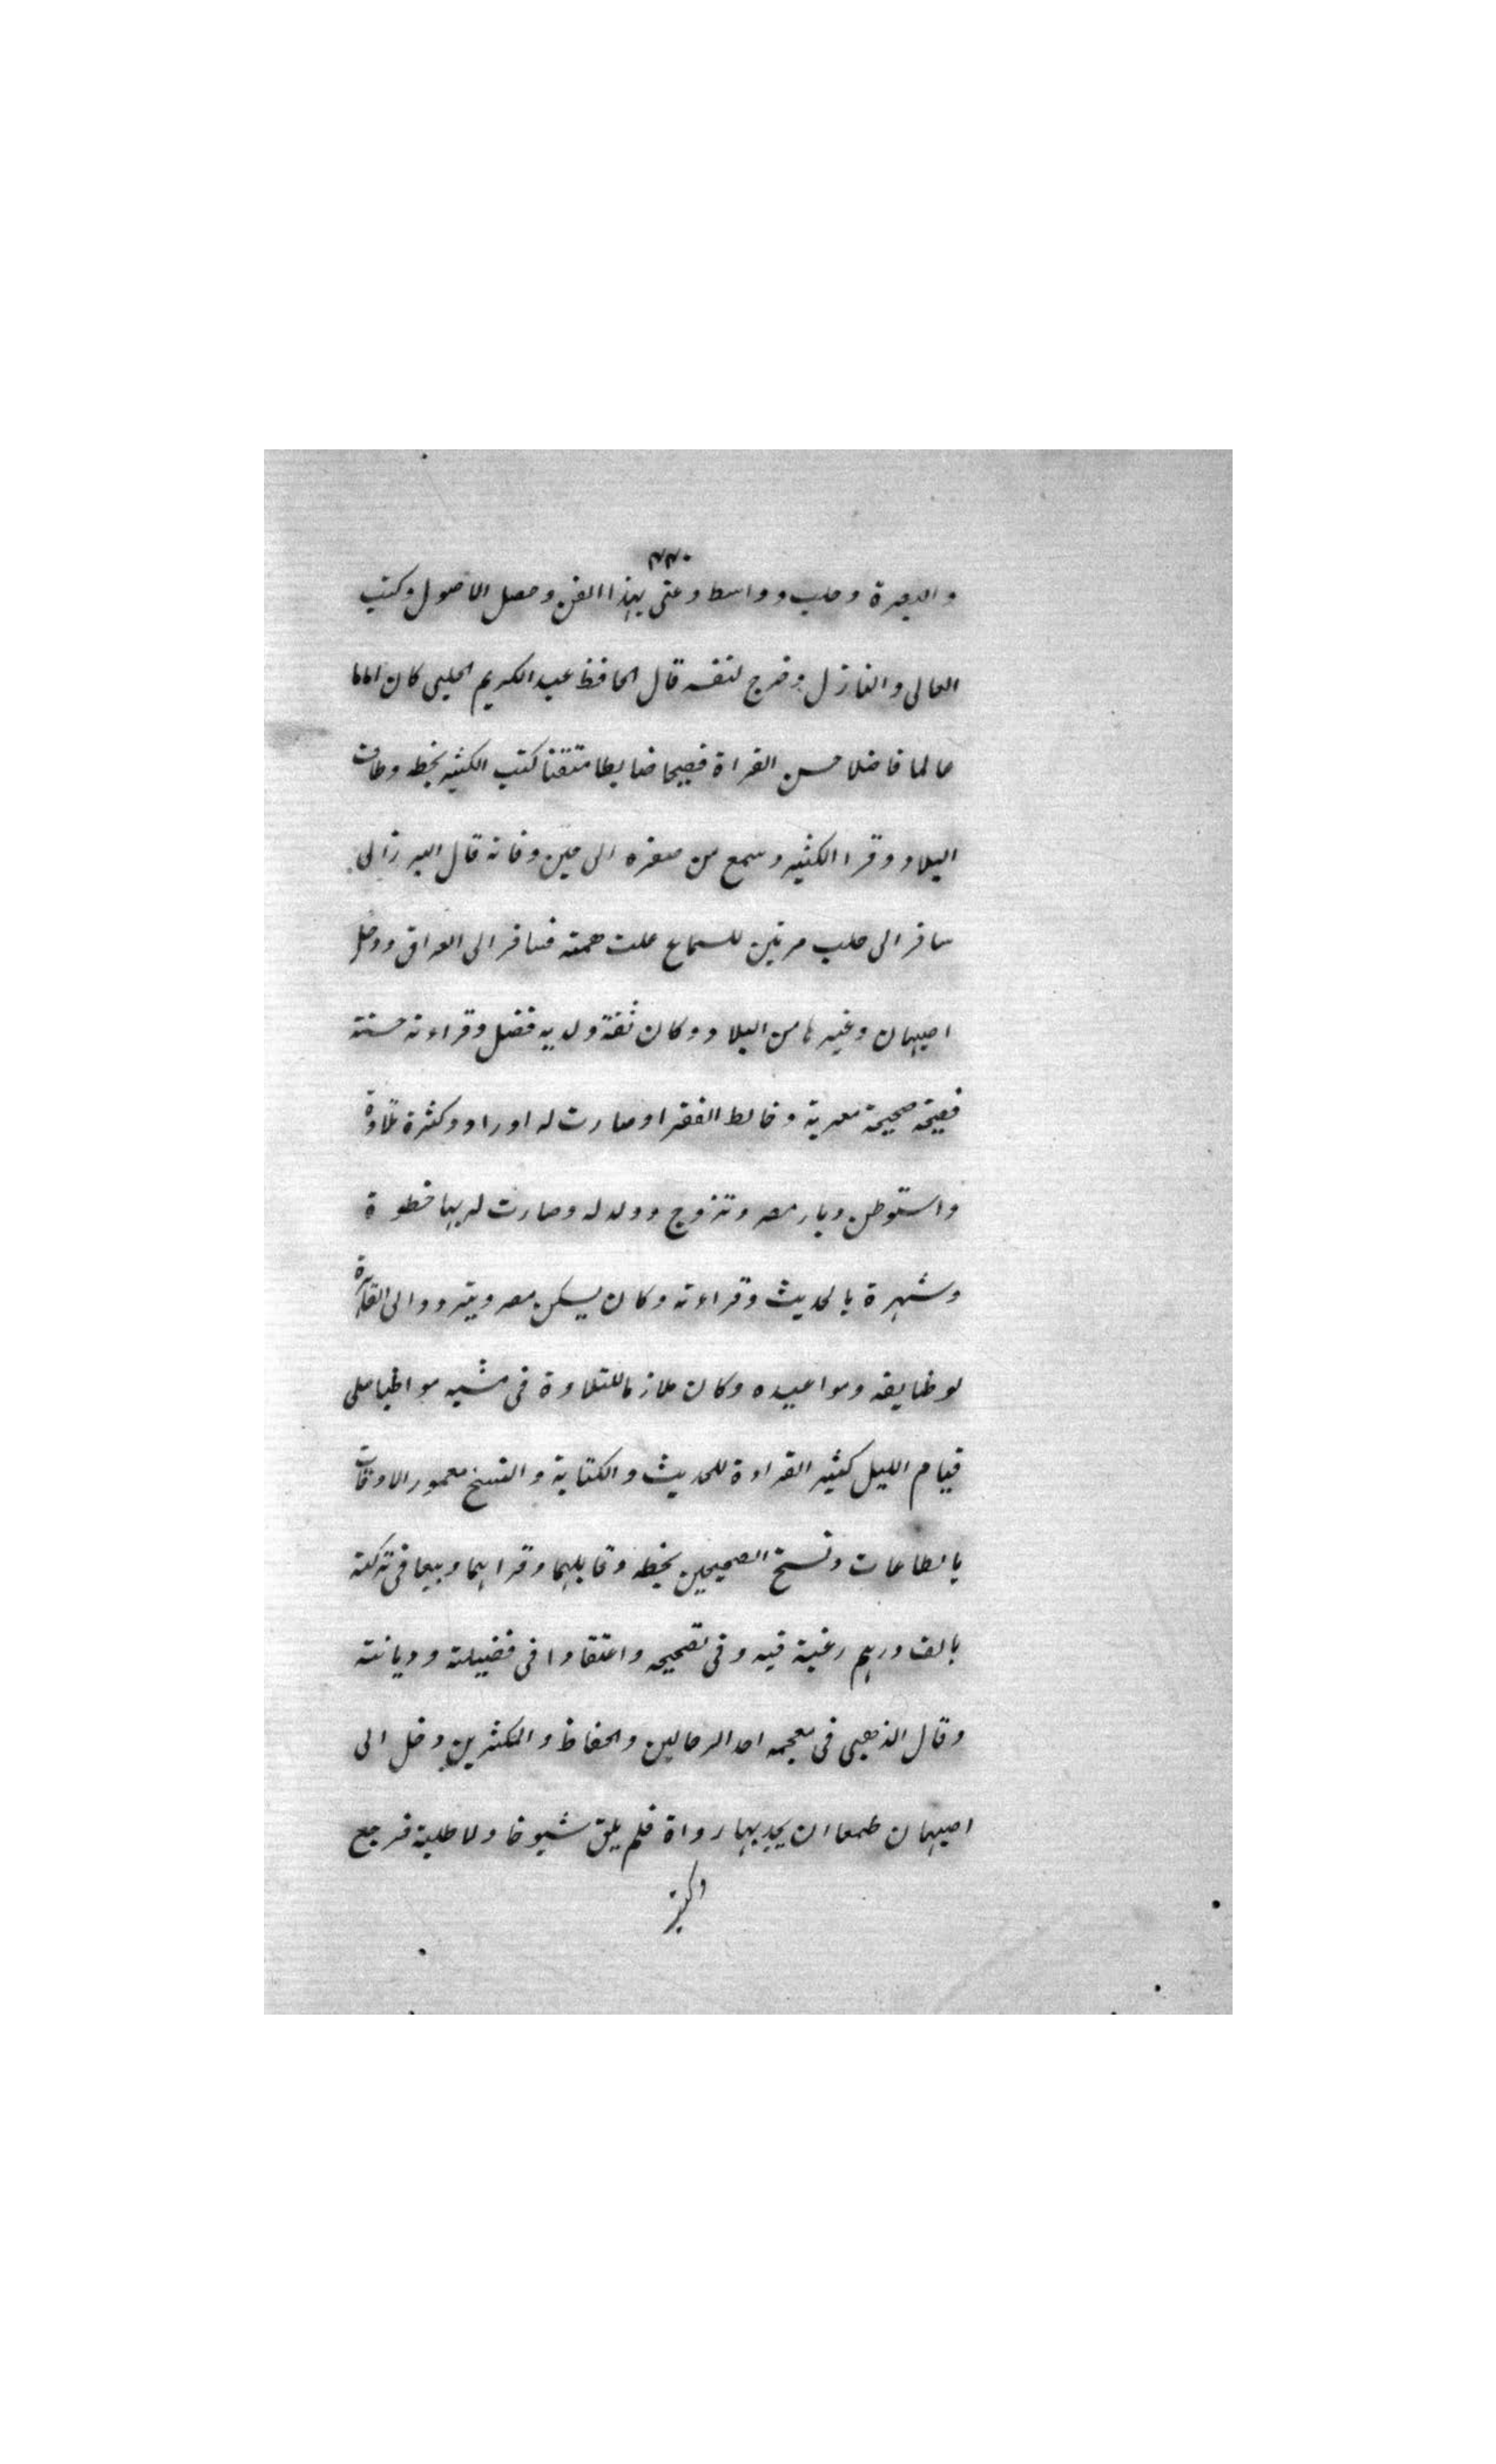 ٢٢٠
والبصرة وحلب وواسط وعنى بهذا الفن وحصل الاصول وكتب
العالى والنازل وخرج لنفسه قال الحافظ عبد الكريم الحلبى كان اماما
عالما فاضلا حسن القراة فصيحا ضابطا متقنا كتب الكثير بخطه وطاف
البلاد وقرا الكثير وسمع من صغره الى حين وفاته قال البرزالى
سافر الى حلب مرتين للسماع علت همته فسافر الى العراق ودخل
اصبهان وغيرها من البلاد وكان ثقة ولديه فضل وقراءته حسنة
فصيحة صحيحة معربة وخالط الفقرا وصارت له اوراد وكثرة تلاوة
واستوطن ديار مصر وتزوج وولد له وصارت له بها حظوة
وشهرة بالحديث وقراءته وكان يسكن مصر ويتردد الى القاهرة
لوظايفه ومواعيده وكان ملازما للتلاوة فى مشيه مواظبا على
قيام الليل كثير القراءة للحديث والكتابة والنسخ معمور الاوقات
بالطاعات ونسخ الصحيحين بخطه وقابلهما وقراهما وبيعا فى تركته
بالف درهم رغبة فيه وفى تصحيحه واعتقادا فى فضيلته وديانته
وقال الذهبى فى معجمه احد الرحالين والحفاظ والمكثرين دخل الى
اصبهان طمعا ان يجد بها رواة فلم يلق شيوخا ولا طلبة فرجع